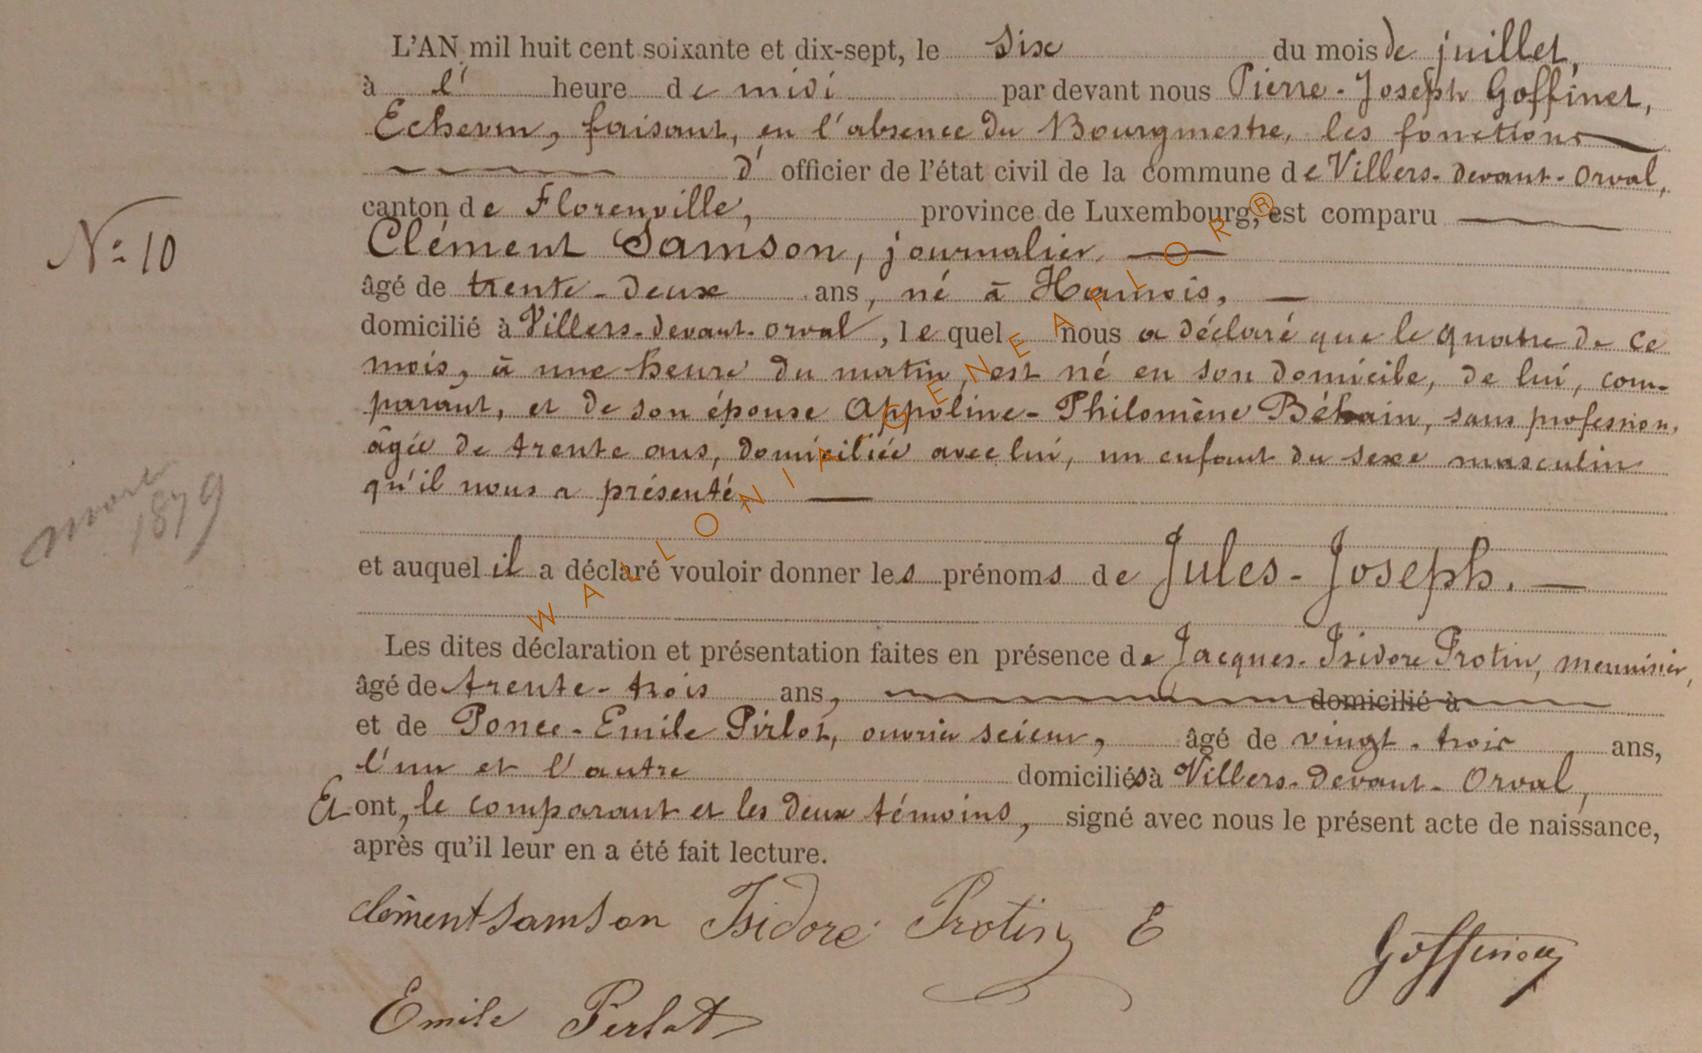 L'AN mil huit cent soixante et dix-sept, le six du mois de juillet,
à l' heure de midi par devant nous Pierre-Joseph Goffinet,
Echevin, faisant, en l'absence du Bourgmestre, les fonctions
d' officier de l'état civil de la commune de Villers-devant-Orval,
canton de Florenville, province de Luxembourg, est comparu
Nº 10
Clément Samson, journalier,
âgé de trente-deux ans, né à
domicilié à Villers-devant-Orval, lequel nous a déclaré que le quatre de ce
mois, à une heure du matin, est né en son domicile, de lui, com-
parant, et de son épouse Appoline-Philomène sans profession,
âgée de trente ans, domiciliée avec lui, un enfant du sexe masculin
qu'il nous a présenté
mort
1879
et auquel il a déclaré vouloir donner les prénoms de Jules-Joseph.
Les dites déclaration et présentation faites en présence de Jacques-Isidore Protin, menuisier,
âgé de trente-trois ans, domicilié à
et de Ponce-Emile Pirlot, ouvrier scieur, âgé de vingt-trois ans,
l'un et l'autre domiciliés à Villers-devant-Orval,
Et ont, le comparant et les deux témoins, signé avec nous le présent acte de naissance,
après qu'il leur en a été fait lecture.
clément Samson Isidore Protin E Goffinet
Emile Perlot
WALLONIA GENEAPLOR®